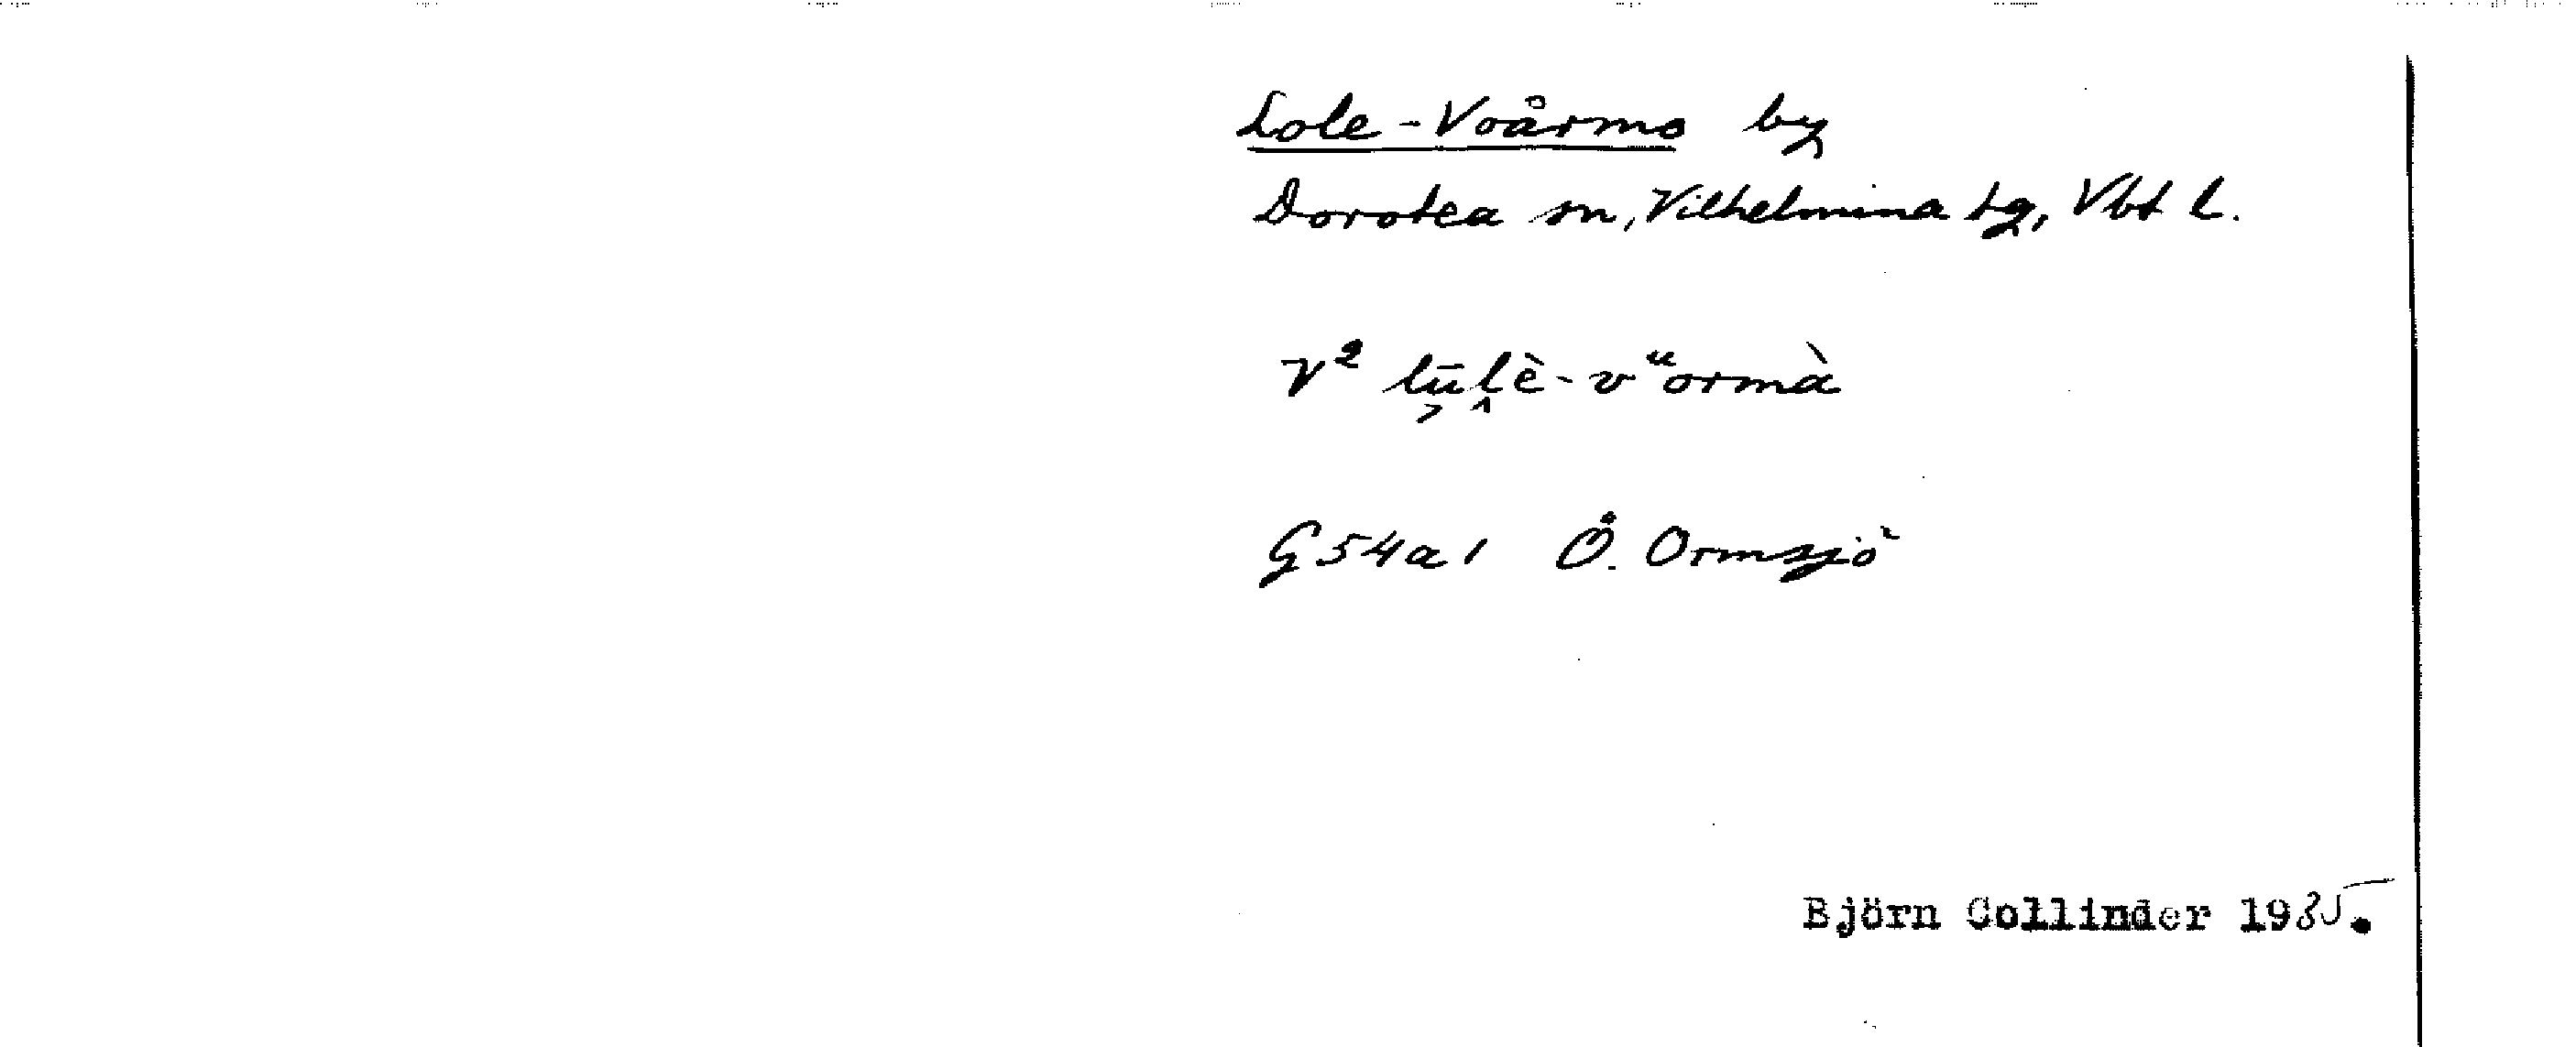 Lole-Voårmo by
Dorotea sn, Vilhelmina tg, Vbt l.
V² lū̬ḽè-vᵘormà
G54a1 Ö. Ormsjö
Björn Collinder 1935.